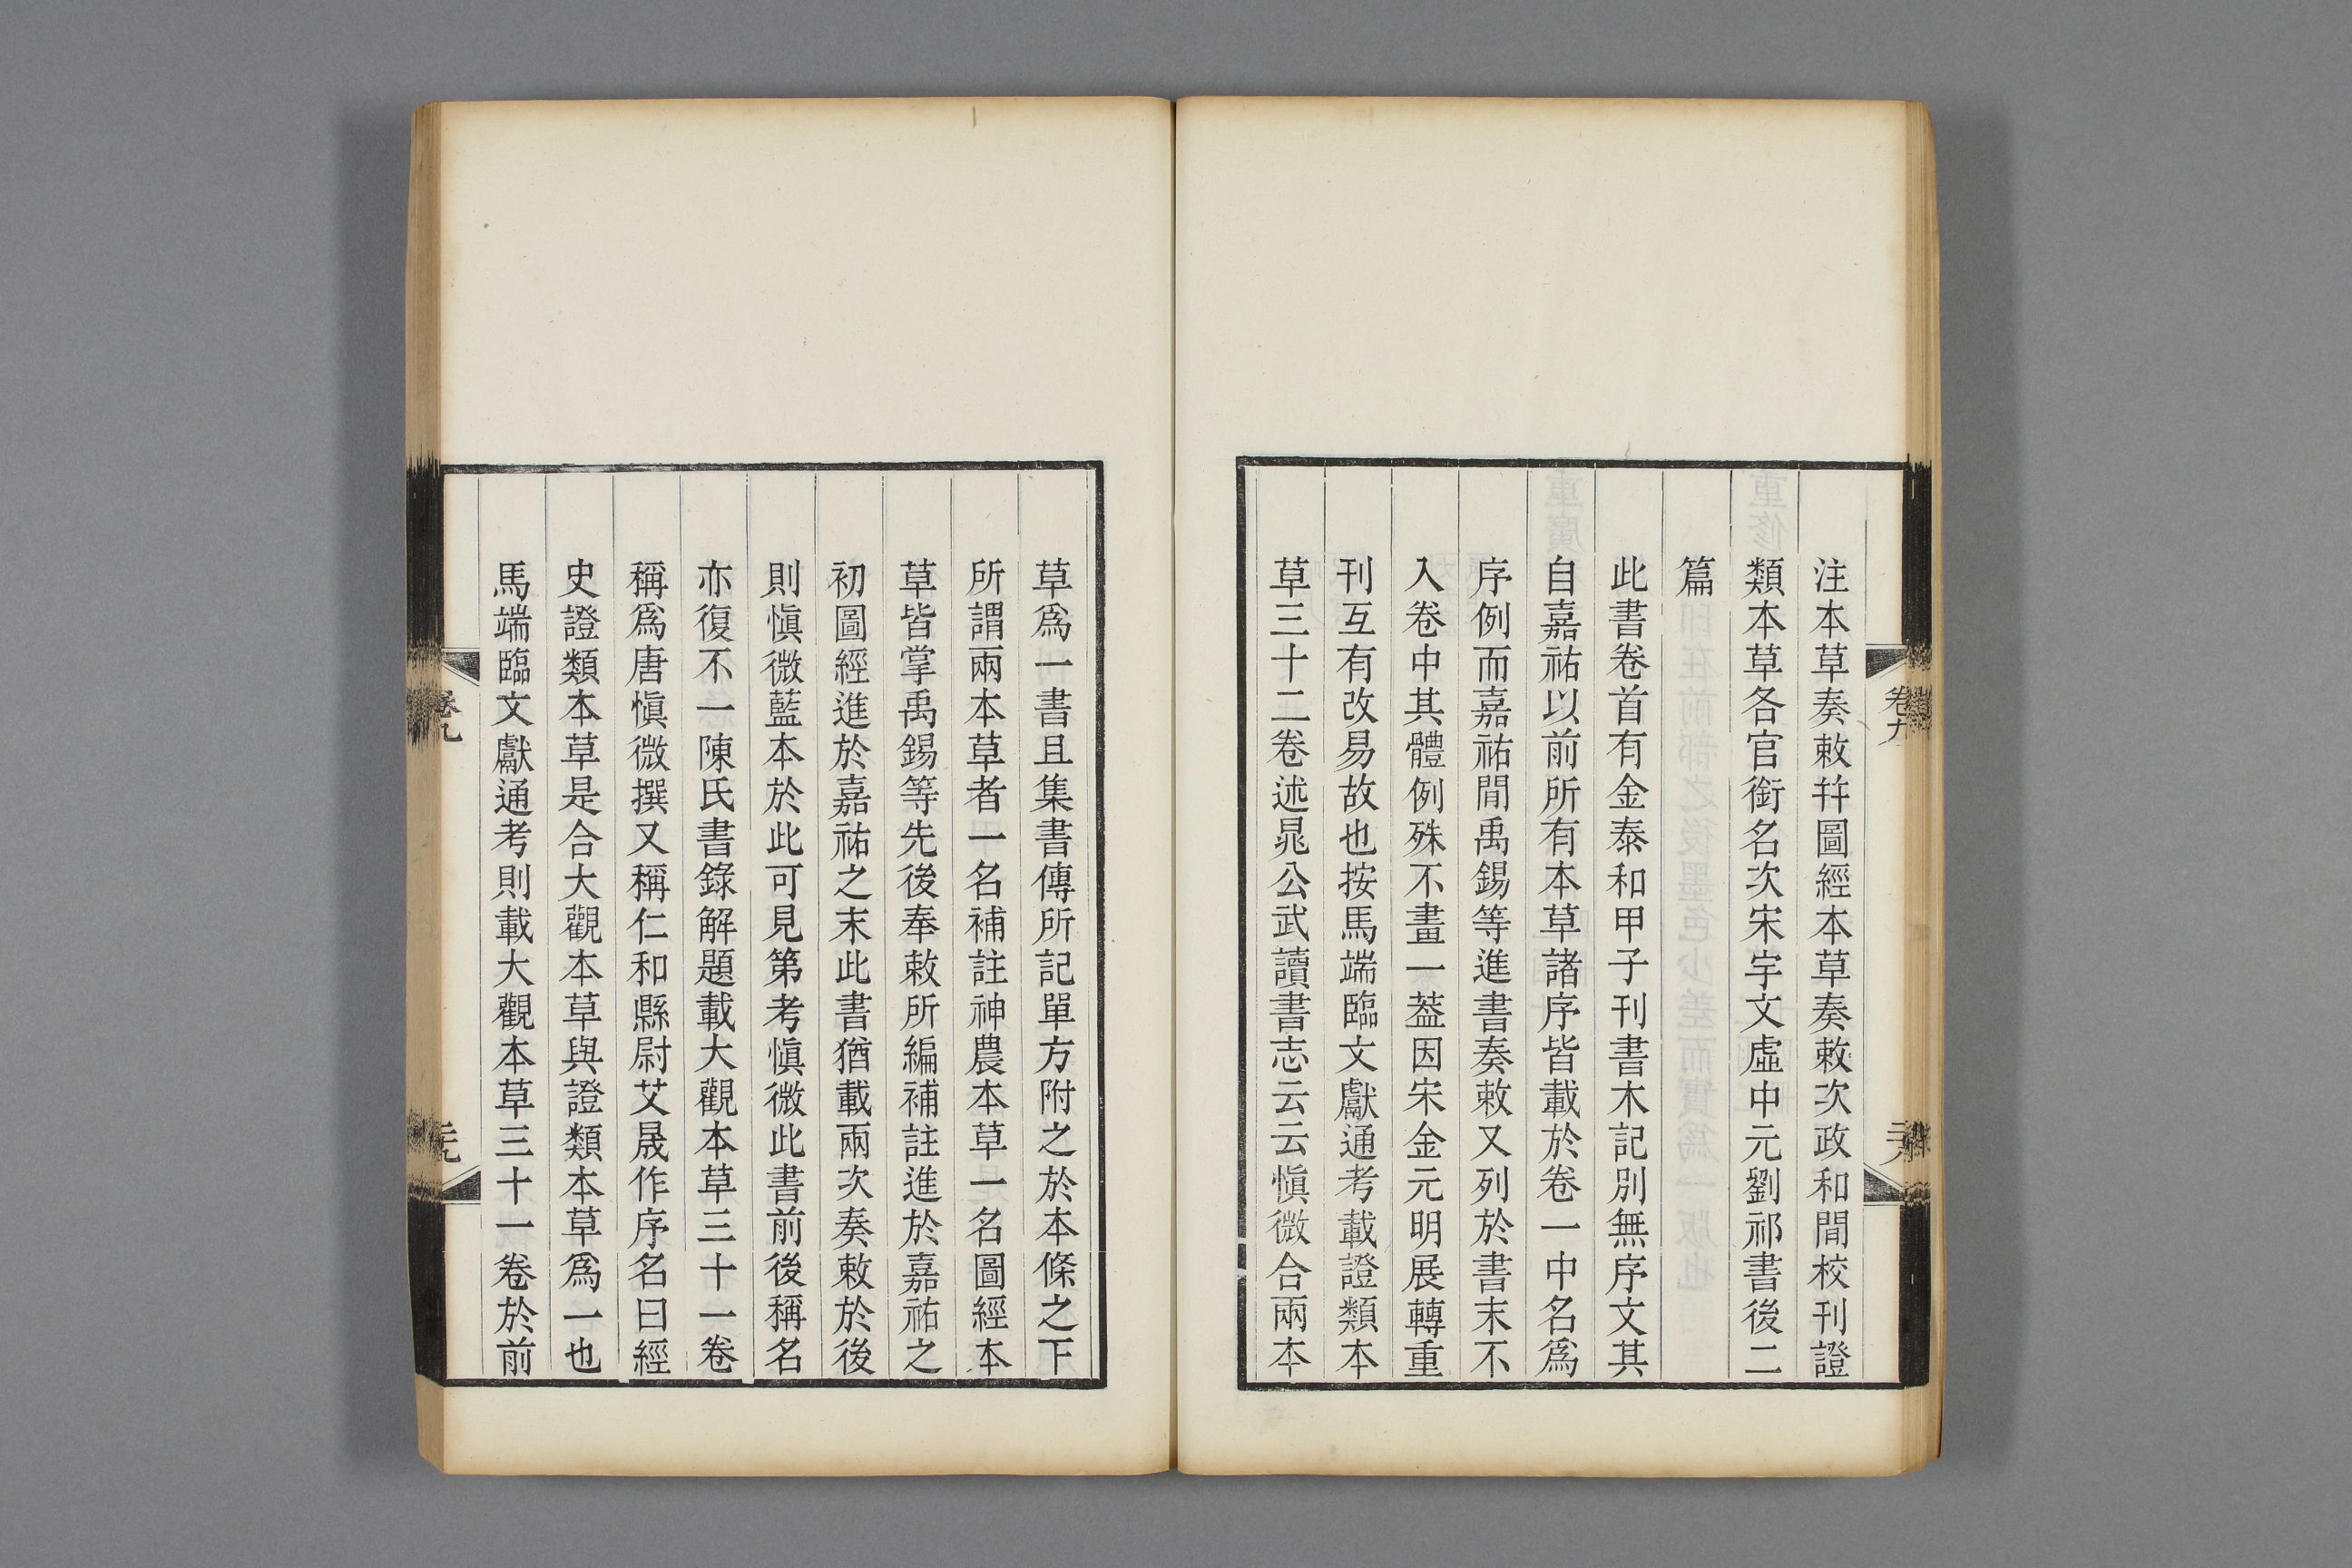 注本草奏敕并圖經本草奏敕次政和間校刊證
類本草各官銜名次宋宇文虛中元劉祁書後二
篇
此書卷首有金泰和甲子刊書木記別無序文其
自嘉祐以前所有本草諸序皆載於卷一中名爲
序例而嘉祐間禹錫等進書奏敕又列於書末不
入卷中其體例殊不畫一葢因宋金元明展轉重
刊互有改易故也按馬端臨文獻通考載證類本
草三十二卷述晁公武讀書志云云愼微合兩本
草爲一書且集書傳所記單方附之於本條之下
所謂兩本草者一名補註神農本草一名圖經本
草皆掌禹錫等先後奉敕所編補註進於嘉祐之
初圖經進於嘉祐之末此書猶載兩次奏敕於後
則愼微藍本於此可見第考愼微此書前後稱名
亦復不一陳氏書錄解題載大觀本草三十一卷
稱爲唐愼微撰又稱仁和縣尉艾晟作序名曰經
史證類本草是合大觀本草與證類本草爲一也
馬端臨文獻通考則載大觀本草三十一卷於前
卷九
卷九